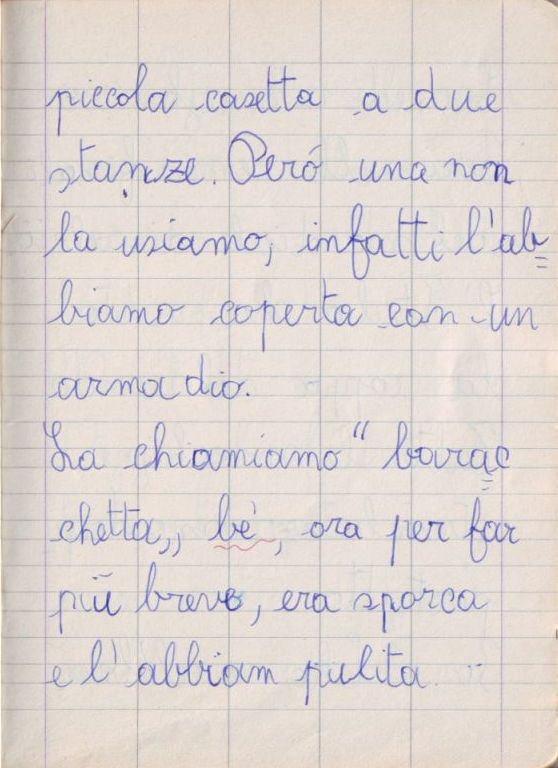 piccola casetta a due
stanze. Peró una non
la usiamo, infatti l'ab=
biamo coperta con un
armadio.
La chiamiamo "barac=
chetta„, bé, ora per far
più breve, era sporca
e l'abbiam pulita.